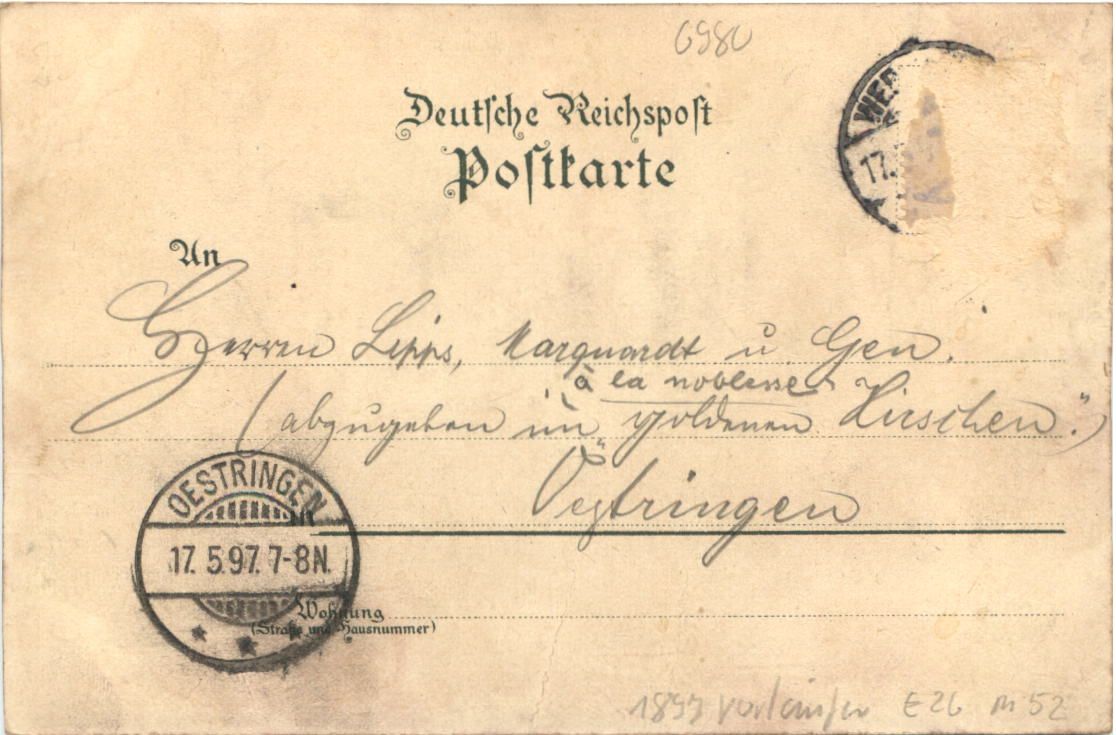 6980
Deutsche Reichspost
Postkarte
WER
17.
An
Herren Lipps, Marquardt u. Gen.
à la noblesse
(abzugeben im „goldenen Hirschen“)
Oestringen
OESTRINGEN
in
17. 5.97. 7-8N.
Wohnung
(Straße und Hausnummer)
vorläufer E26 m 52